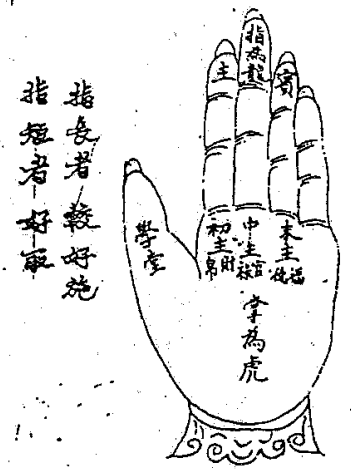 指長者較好施
指短者好取
指為龍
主
賓
學堂
初主財帛
中主官祿
末主福德
掌為虎